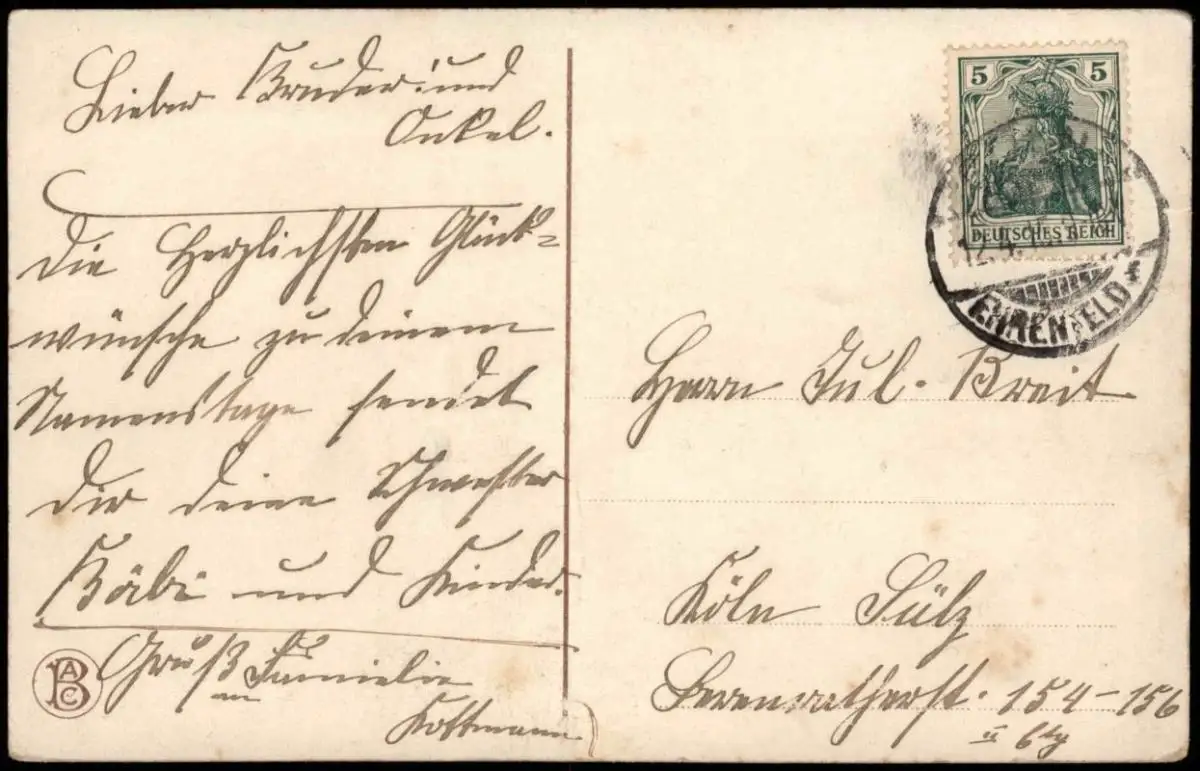 Lieber Bruder und
Onkel.
Die Herzlichsten Glück=
wünsche zu deinem
Namenstage sendet
Dir deine Schwester
Bäbi und Kinder.
Gruß an Familie
Kottmann
BAC
5 5
DEUTSCHES REICH
EHRENFELD *
Herrn Jul. Breit
Köln Sülz
Berenratherst. 154-156
II Etg